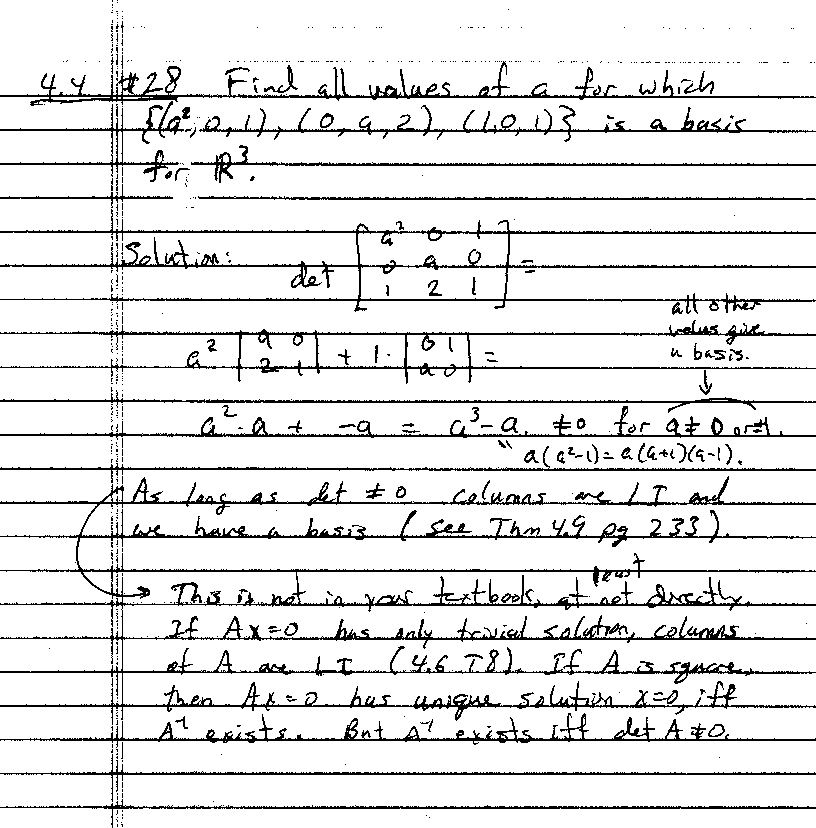 4.4 #28 Find all values of a for which
{(a², 0, 1), (0, a, 2), (1, 0, 1)} is a basis
for ℝ³.
Solution: det [a² 0 1; 0 a 0; 1 2 1] =
all other
values give
a basis.
↓
a² |a 0; 2 1| + 1· |0 1; a 0| =
a²·a + -a = a³-a. ≠0 for a≠0 or ±1.
" a(a²-1) = a(a+1)(a-1).
As long as det ≠ 0 columns are LI and
we have a basis (see Thm 4.9 pg 233).
least
→ This is not in your textbook, at not directly.
If Ax=0 has only trivial solution, columns
of A are LI (4.6 T8). If A is square,
then Ax=0 has unique solution x=0, iff
A⁻¹ exists. But A⁻¹ exists iff det A≠0.